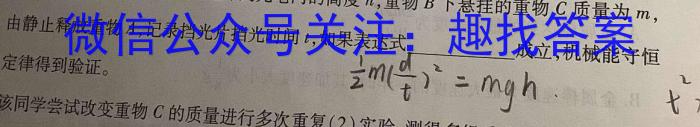 的高度h,重物B下悬挂的重物C质量为m,
由静止释放 物 ,记录挡光片挡光时间t,如果表达式 成立,机械能守恒
微信公众号关注:趣找答案
定律得到验证。
½m(d/t)² = mgh
t²
该同学尝试改变重物C的质量进行多次重复(2)实验,测得